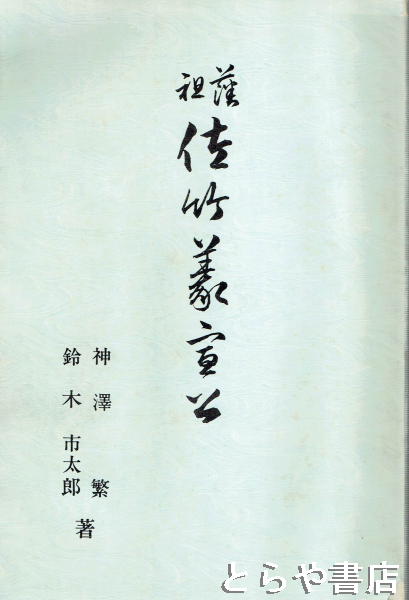 藩祖
佐竹義宣公
神澤 繁
鈴木 市太郎
著
とらや書店